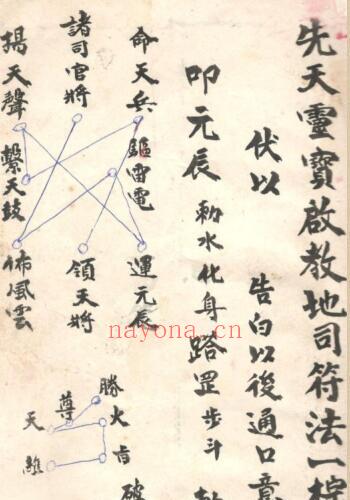 先天靈寶啟教地司符法一
伏以 告白以後通口意
叩元辰 勅水化身 踏罡步斗
命天兵 驅雷電 運元辰
諸司官將 領天將
揚天聲 繫天鼓 佈風雲
勝火
破
尊
天
維
nayona.cn